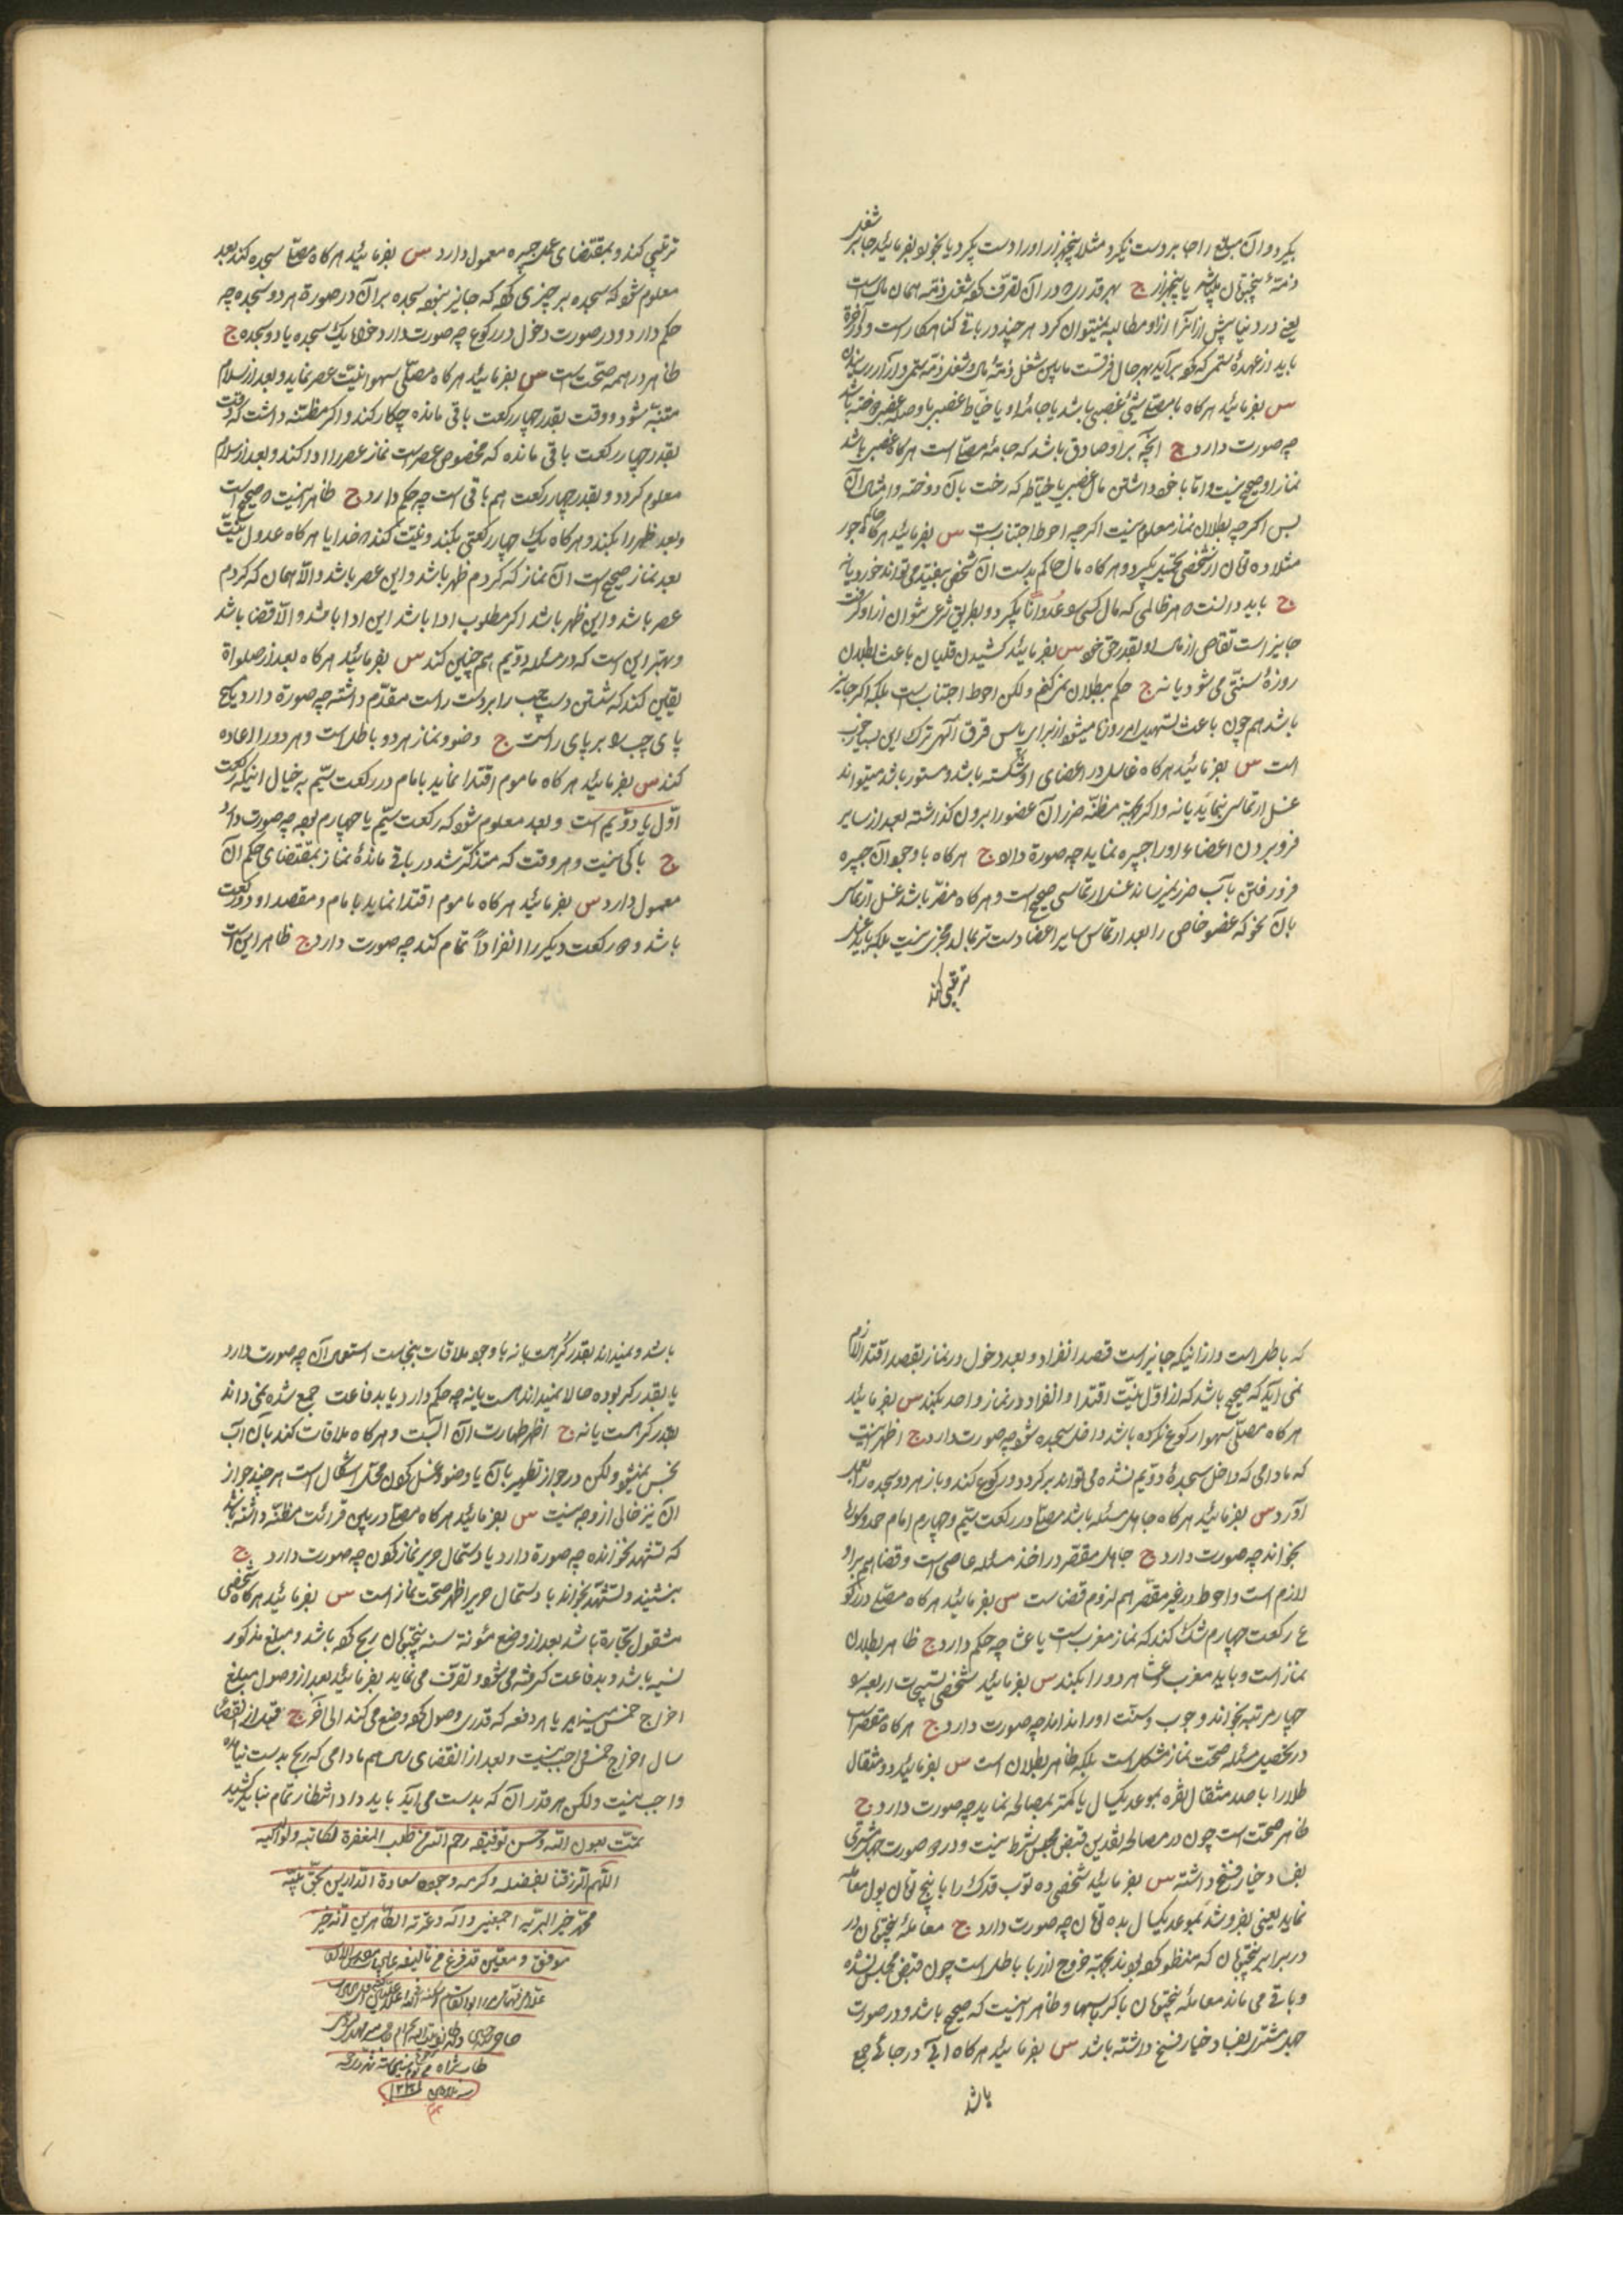 بگیرد و آن مبلغ را جابر دست نگیرد مثلا پنجهزار او را دست بگیرد یا بخود بفرمائید جابر شغل
ذمّهٔ پنجتومان یا پنجهزار ج بهر قدری که در آن تصرّف کرد شغل ذمّه همان مال است
یعنی در دنیا پیش از آنرا از او مطالبه نمیتوان کرد هر چند در باقی گناهکار است و در آخرة
باید از عهدهٔ ستمی که کرد برآید بهر حال فرقست مابین شغل ذمّهٔ مال و شغل ذمّه ستم و آزار رسانیدن
س بفرمائید هر گاه با مصلّی شیئ غصبی باشد یا جامهٔ او با خیاط غصبی یا وصلهٔ غصبی دوخته باشد
چه صورت دارد ج آنچه بر او صادق باشد که جامهٔ مصلّی است هر گاه غصبی باشد
نماز او صحیح نیست و امّا با خود داشتن مال غصبی یا خیاطه که رخت بآن دوخته و امثال آن
پس اگر چه بطلان نماز معلوم نیست اگر چه احوط اجتناب است س بفرمائید هر گاه حاکم جور
مثلا ده تومان از شخصی بگیرد و هر گاه مال حاکم بدست آن شخص بیفتد میتواند خورد یا نه
ج باید دانست که هر ظالمی که مال کسی را عُدواناً بگیرد و بطریق شرعی نتوان از او گرفت
جایز است تقاص از مال او بقدر حق خود س بفرمائید کشیدن قلیان باعث بطلان
روزهٔ سنّتی می شود یا نه ج حکم ببطلان نمیکنم و لکن احوط اجتناب است بلکه اگر جایز
باشد هم چون باعث تسهیل امر روزها میشود از برای پاس قرق الهی ترک این بسیار خوب
است س بفرمائید هر گاه غاسل در اعضای او شکسته باشد و مستور باشد میتواند
غسل ارتماسی نماید یا نه و اگر بجهة مظنّه ضرر آن عضو را بیرون گذاشته بعد از سایر
فرو بردن اعضاء او را جبیره نماید چه صورة دارد ج هر گاه با وجود آن جبیره
فرو رفتن بآب ضرر نمیرساند غسل ارتماسی صحیح است و هر گاه مضرّ باشد غسل ارتماسی
بآن نحو که عضو خاصی را بعد ارتماس سایر اعضا دست تر بمالد مجزی نیست بلکه باید غسل
ترتیبی کند
ترتیبی کند و بمقتضای عمل جبیره معمول دارد س بفرمائید هر گاه مصلّی سجده کند بعد
معلوم شود که سجده بر چیزی کرد که جایز نبود سجده بر آن در صورة هر دو سجده چه
حکم دارد و در صورت دخول در رکوع چه صورت دارد خواه یک سجده یا دو سجده ج
ظاهر در همه صحّت است س بفرمائید هر گاه مصلّی سهوا نیّت عصر نماید و بعد از سلام
متنبّه شود و وقت بقدر چهار رکعت باقی مانده چکار کند و اگر مظنّه داشت که وقت
بقدر چهار رکعت باقی مانده که مخصوص عصر است نماز عصر را ادا کند و بعد از سلام
معلوم کرد و بقدر چهار رکعت هم باقی است چه حکم دارد ج ظاهر اینست که صحیح است
و بعد ظهر را بکند و هر گاه یک چهار رکعتی بکند و نیّت کند که خدایا هر گاه عدول بنیّت
بعد نماز صحیح است آن نماز که کردم ظهر باشد و این عصر باشد و الّا همان که کردم
عصر باشد و این ظهر باشد اگر مطلوب ادا باشد این ادا باشد و الّا قضا باشد
و بهتر این است که در مسئله دوّیم هم چنین کند س بفرمائید هر گاه بعد از صلواة
یقین کند که شستن دست چپ را بر دست راست مقدّم داشته چه صورة دارد یا مسح
پای چپ را بر پای راست ج وضو و نماز هر دو باطل است و هر دو را اعاده
کند س بفرمائید هر گاه ماموم اقتدا نماید بامام در رکعت سیّم به خیال اینکه رکعت
اوّل یا دوّیم است و بعد معلوم شود که رکعت سیّم یا چهارم بود چه صورت دارد
ج باکی نیست و هر وقت که متذکّر شد در باقی ماندهٔ نماز بمقتضای حکم آن
معمول دارد س بفرمائید هر گاه ماموم اقتدا نماید بامام و مقصد او دو رکعت
باشد و دو رکعت دیگر را انفراداً تمام کند چه صورت دارد ج ظاهر این است
که باطل است و از اینکه جایز است قصد انفراد و بعد دخول در نماز بقصد اقتدا لازم
نمی آید که صحیح باشد که از اوّل نیّت اقتدا و انفراد در نماز واحد بکند س بفرمائید
هر گاه مصلّی سهوا رکوع نکرده باشد داخل سجده شود چه صورت دارد ج اظهر اینست
که مادامی که داخل سجدهٔ دوّیم نشده می تواند برگردد و رکوع کند و باز هر دو سجده را بعمل
آورد س بفرمائید هر گاه جاهل مسئله باشد مصلّی در رکعت سیّم و چهارم امام حمد و سورهٔ
بخواند چه صورت دارد ج جاهل مقصّر در اخذ مسئله عاصی است و قضا هم بر او
لازم است و احوط در غیر مقصّر هم لزوم قضاست س بفرمائید هر گاه مصلّی در رکو
ع رکعت چهارم شک کند که نماز مغرب است یا عشا چه حکم دارد ج ظاهر بطلان
نماز است و باید مغرب و عشا هر دو را بکند س بفرمائید شخصی تسبیحات اربعه را
چهار مرتبه بخواند و وجوب و سنّت او را نداند چه صورت دارد ج هر گاه مقصّر است
در تحصیل مسئله صحّت نماز مشکل است بلکه ظاهر بطلان است س بفرمائید دو مثقال
طلا را با صد مثقال نقره بموعد یکسال یا کمتر بمصالحه نماید چه صورت دارد ج
ظاهر صحّت است چون در مصالحه نقدین قبض مجلس شرط نیست و در دو صورت جهل مشتری
بفساد خیار فسخ داشته س بفرمائید شخصی ده توب قدک را با پنج تومان پول معامله
نماید یعنی بفروشد بموعد یکسال بده تومان چه صورت دارد ج معاملهٔ پنجتومان در
در برابر پنجتومان که منظور کرده بودند بجهة خروج از ربا باطل است چون قبض مجلس نشده
و باقی می ماند معاملهٔ پنجتومان با کرباسها و ظاهر اینست که صحیح باشد و در صورت
جهل مشتری بفساد خیار فسخ داشته باشد س بفرمائید هر گاه آبی در جائی جمع
باشد
باشد و نمیداند بقدر کُر هست یا نه با وجود ملاقات بنجاست استعمال آن چه صورت دارد
یا بقدر کر بوده حالا نمیداند هست یا نه چه حکم دارد یا بدفاعت جمع شده نمی داند
بقدر کر هست یا نه ج اظهر طهارت آن آبست و هر گاه ملاقات کند بآن آب
نجس نمیشود و لکن در جواز تطهیر بآن یا وضو و غسل کردن محلّ اشکال است هر چند جواز
آن نیز خالی از وجه نیست س بفرمائید هر گاه مصلّی در بین قرائت مظنّه داشته باشد
که تشهّد نخوانده چه صورة دارد یا دستمال حریر نماز کردن چه صورت دارد ج
بنشیند و تشهّد بخواند با دستمال حریر اظهر صحّت نماز است س بفرمائید هر گاه شخصی
مشغول تجارة باشد بعد از وضع مؤنة سنه پنجتومان ربح کرده باشد و مبلغ مذکور
نسیه باشد و بدفاعت گرفته می شود و تصرّف می نماید بفرمائید بعد از وصول مبلغ
اخراج خمس مینماید یا هر دفعه که قدری وصول کرد وضع می کند الی آخر ج قبل از انقضاء
سال اخراج خمس واجب نیست و بعد از انقضای سال هم مادامی که ربح بدست نیامده
واجب نیست و لکن هر قدر آن که بدست می آید باید داد انتظار تمام نباید کشید
تمّت بعون الله و حسن توفیقه رحم الله من طلب المغفرة لکاتبه و لوالدیه
اللّهم ارزقنا بفضله و کرمه وجوده سعادة الدّارین بحقّ نبیّه
محمّد خیر البریّه اجمعین و آله و عترته الطّاهرین انّه خیر
موفّق و معین قد فرغ من تالیفه
۱۲۳۱